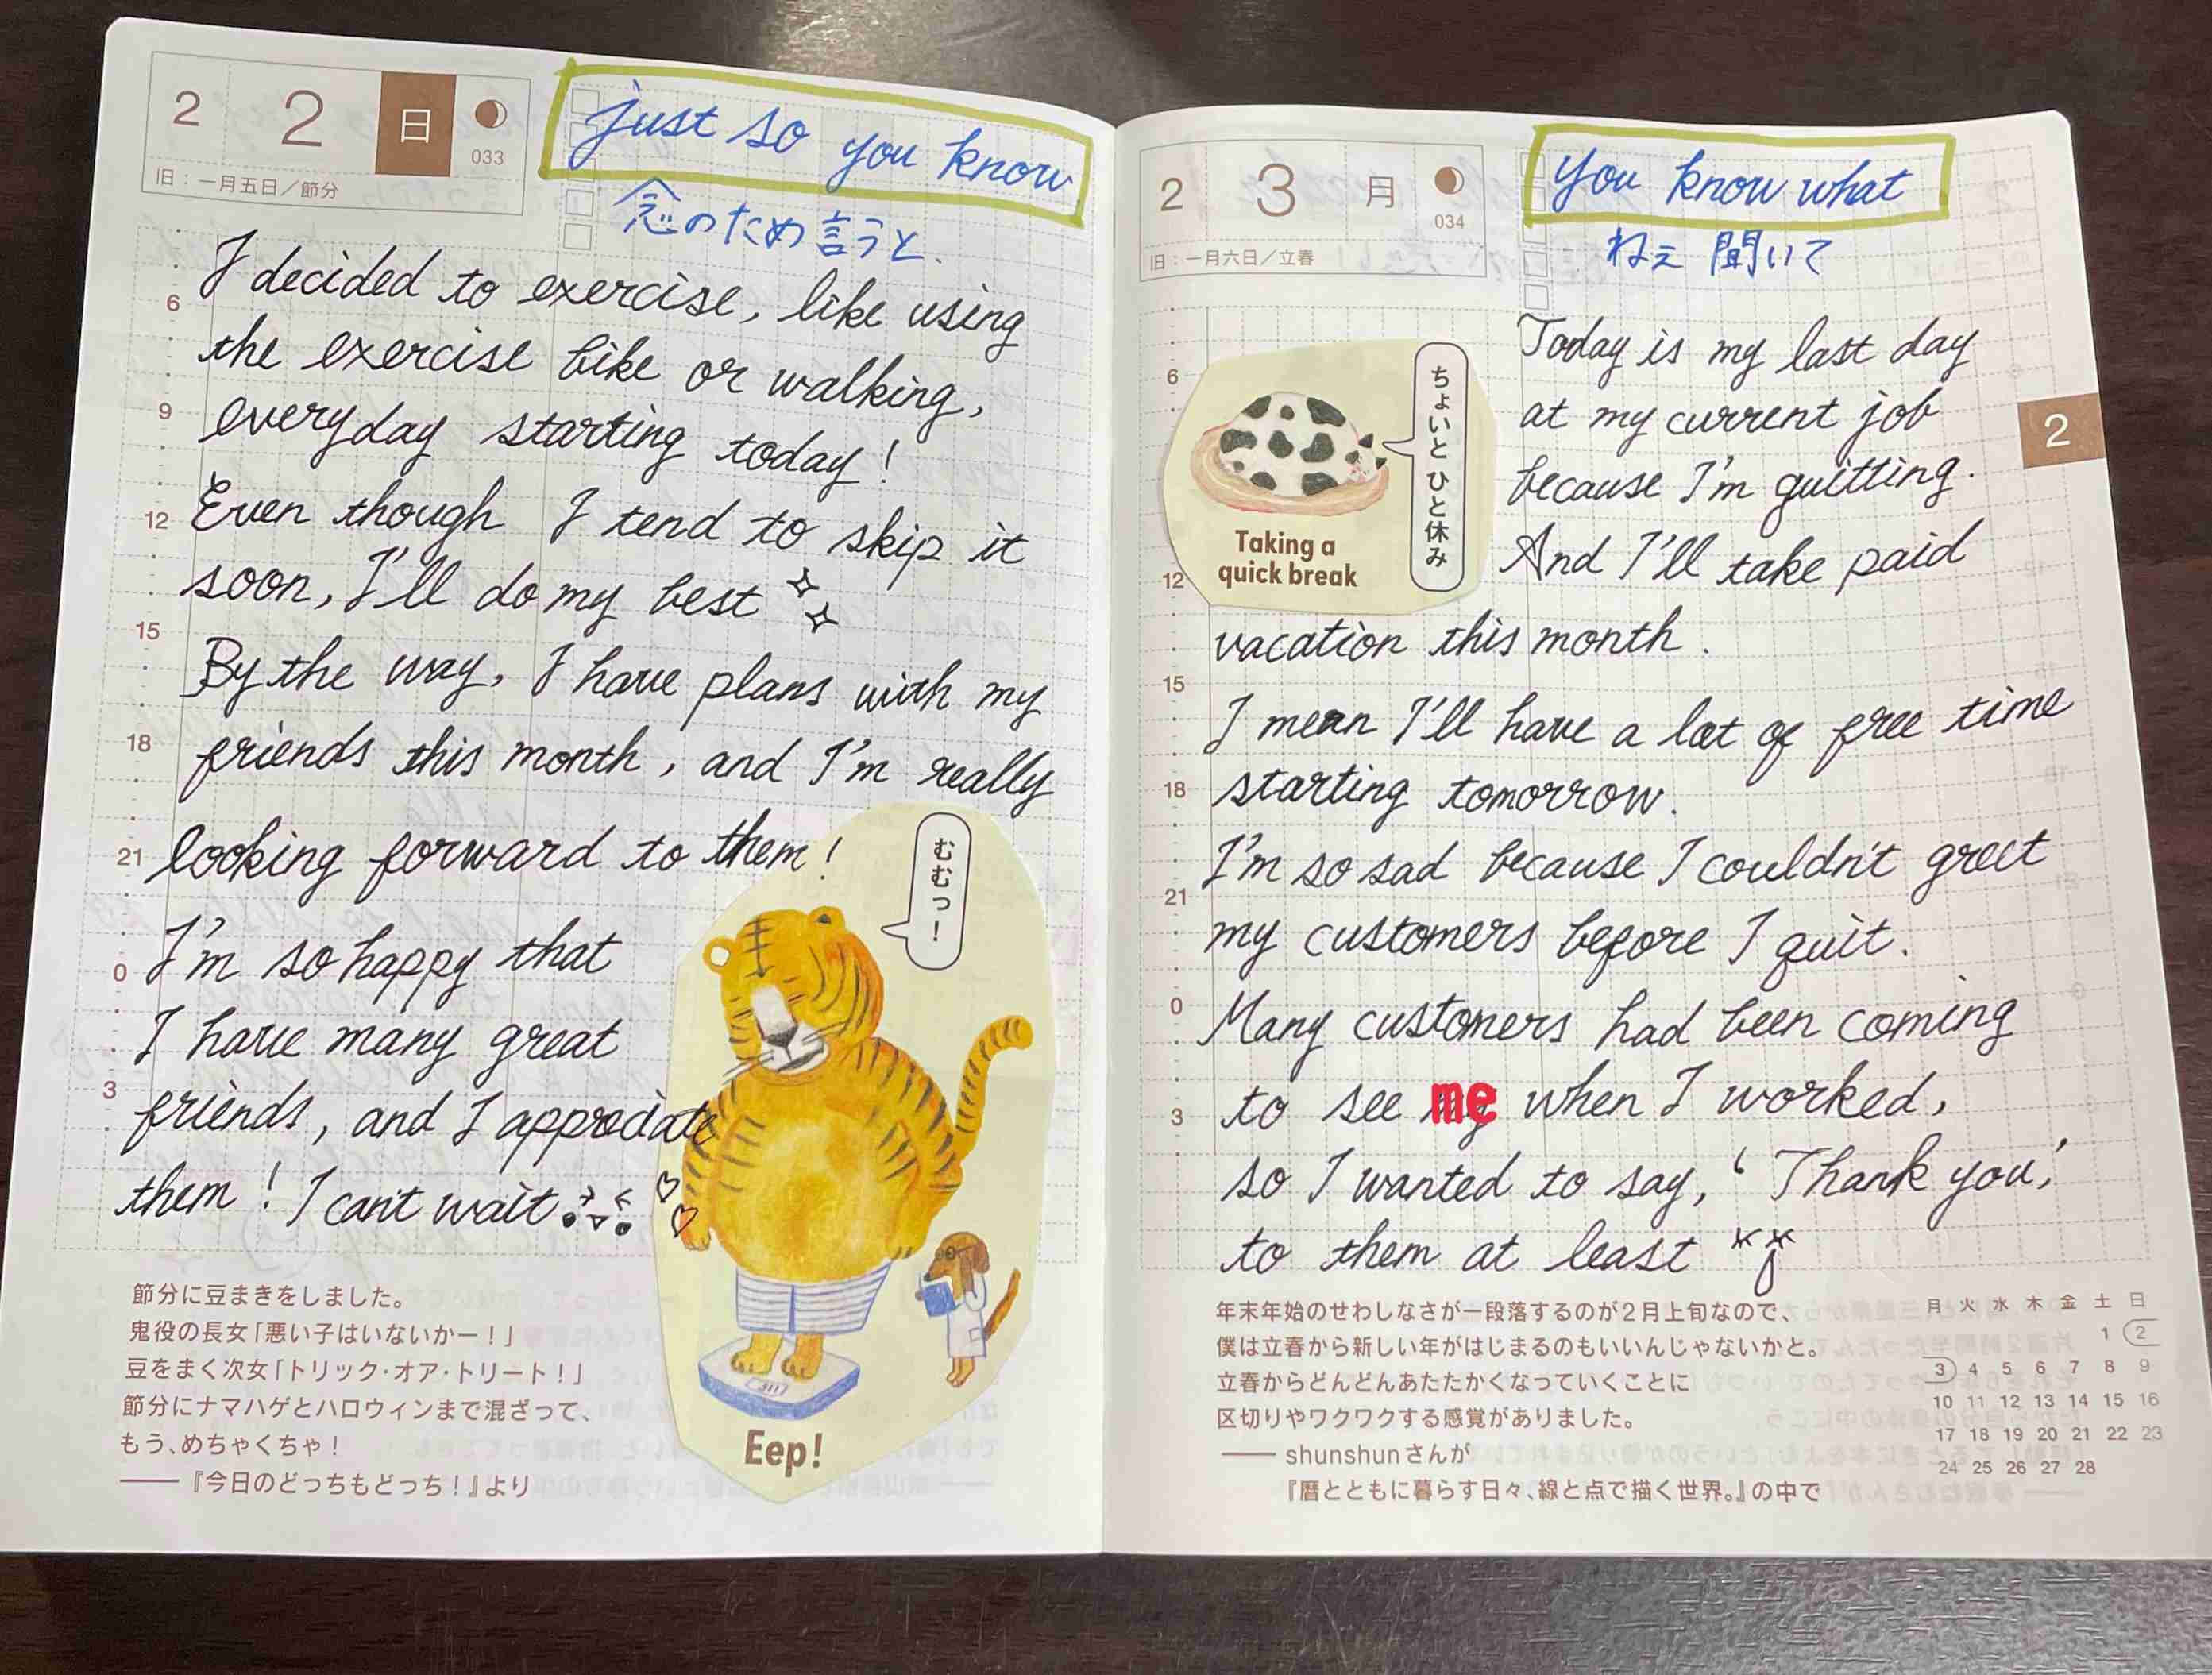 2 2 日
033
旧：一月五日／節分
just so you know
念のため言うと、
I decided to exercise, like using
the exercise bike or walking,
everyday starting today!
Even though I tend to skip it
soon, I'll do my best
By the way, I have plans with my
friends this month, and I'm really
looking forward to them!
I'm so happy that
I have many great
friends, and I approciate
them! I can't wait
6
9
12
15
18
21
0
3
むむっ！
Eep!
節分に豆まきをしました。
鬼役の長女「悪い子はいないかー！」
豆をまく次女「トリック・オア・トリート！」
節分にナマハゲとハロウィンまで混ざって、
もう、めちゃくちゃ！
——『今日のどっちもどっち！』より
2 3 月
034
旧：一月六日／立春
You know what
ねぇ 聞いて
2
ちょいと ひと休み
Taking a
quick break
Today is my last day
at my current job
because I'm quitting.
And I'll take paid
vacation this month.
I mean I'll have a lot of free time
starting tomorrow.
I'm so sad because I couldn't greet
my customers before I quit.
Many customers had been coming
to see me when I worked,
so I wanted to say, 'Thank you,'
to them at least
6
12
15
18
21
0
3
年末年始のせわしなさが一段落するのが2月上旬なので、
僕は立春から新しい年がはじまるのもいいんじゃないかと。
立春からどんどんあたたかくなっていくことに
区切りやワクワクする感覚がありました。
—— shunshunさんが
『暦とともに暮らす日々、線と点で描く世界。』の中で
月 火 水 木 金 土 日
1 2
3 4 5 6 7 8 9
10 11 12 13 14 15 16
17 18 19 20 21 22 23
24 25 26 27 28